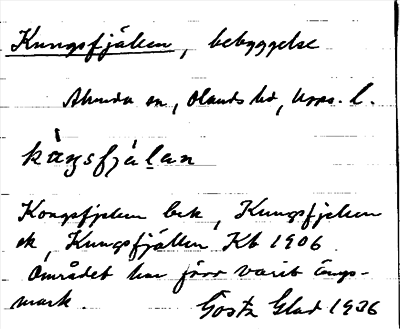 Kungsfjälen, bebyggelse
Alunda sn, Olands hd, Upps. l.
kàŋsfjálan
Kongsfjelen bek, Kungsfjelen
ek, Kungsfjällen Kb 1906.
Området har förr varit ängs-
mark. Gösta Glad 1936